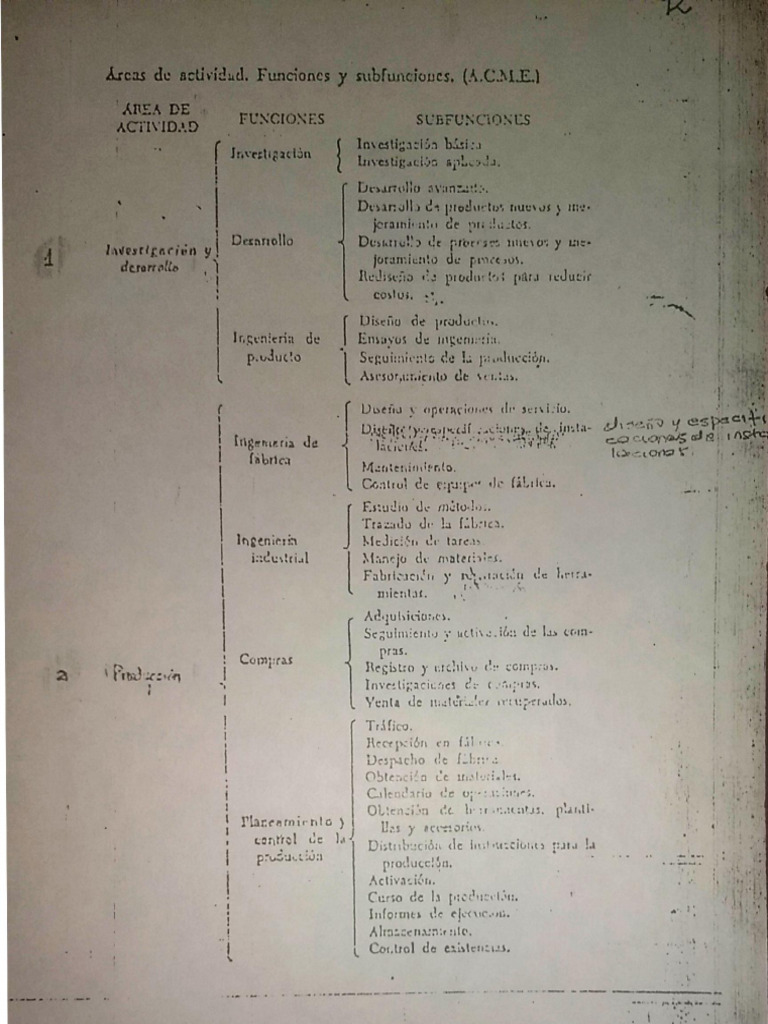 Áreas de actividad. Funciones y subfunciones. (A.C.M.E.)
ÁREA DE
ACTIVIDAD
FUNCIONES
SUBFUNCIONES
1
Investigación y
desarrollo
Investigación
Investigación básica
Investigación aplicada.
Desarrollo
Desarrollo avanzado.
Desarrollo de productos nuevos y me-
joramiento de productos.
Desarrollo de procesos nuevos y me-
joramiento de procesos.
Rediseño de productos para reducir
costos.
Ingeniería de
producto
Diseño de productos.
Ensayos de ingeniería.
Seguimiento de la producción.
Asesoramiento de ventas.
2
Producción
Ingeniería de
fábrica
Diseño y operaciones de servicio.
Diseño y especificaciones de insta-
laciones.
diseño y especifi
caciones de insta
laciones.
Mantenimiento.
Control de equipos de fábrica.
Ingeniería
industrial
Estudio de métodos.
Trazado de la fábrica.
Medición de tareas.
Manejo de materiales.
Fabricación y reparación de herra-
mientas.
Compras
Adquisiciones.
Seguimiento y activación de las com-
pras.
Registro y archivo de compras.
Investigaciones de compras.
Venta de materiales recuperados.
Planeamiento y
control de la
producción
Tráfico.
Recepción en fábrica
Despacho de fábrica
Obtención de materiales.
Calendario de operaciones.
Obtención de herramientas, planti-
llas y accesorios.
Distribución de instrucciones para la
producción.
Activación.
Curso de la producción.
Informes de ejecución.
Almacenamiento.
Control de existencias.